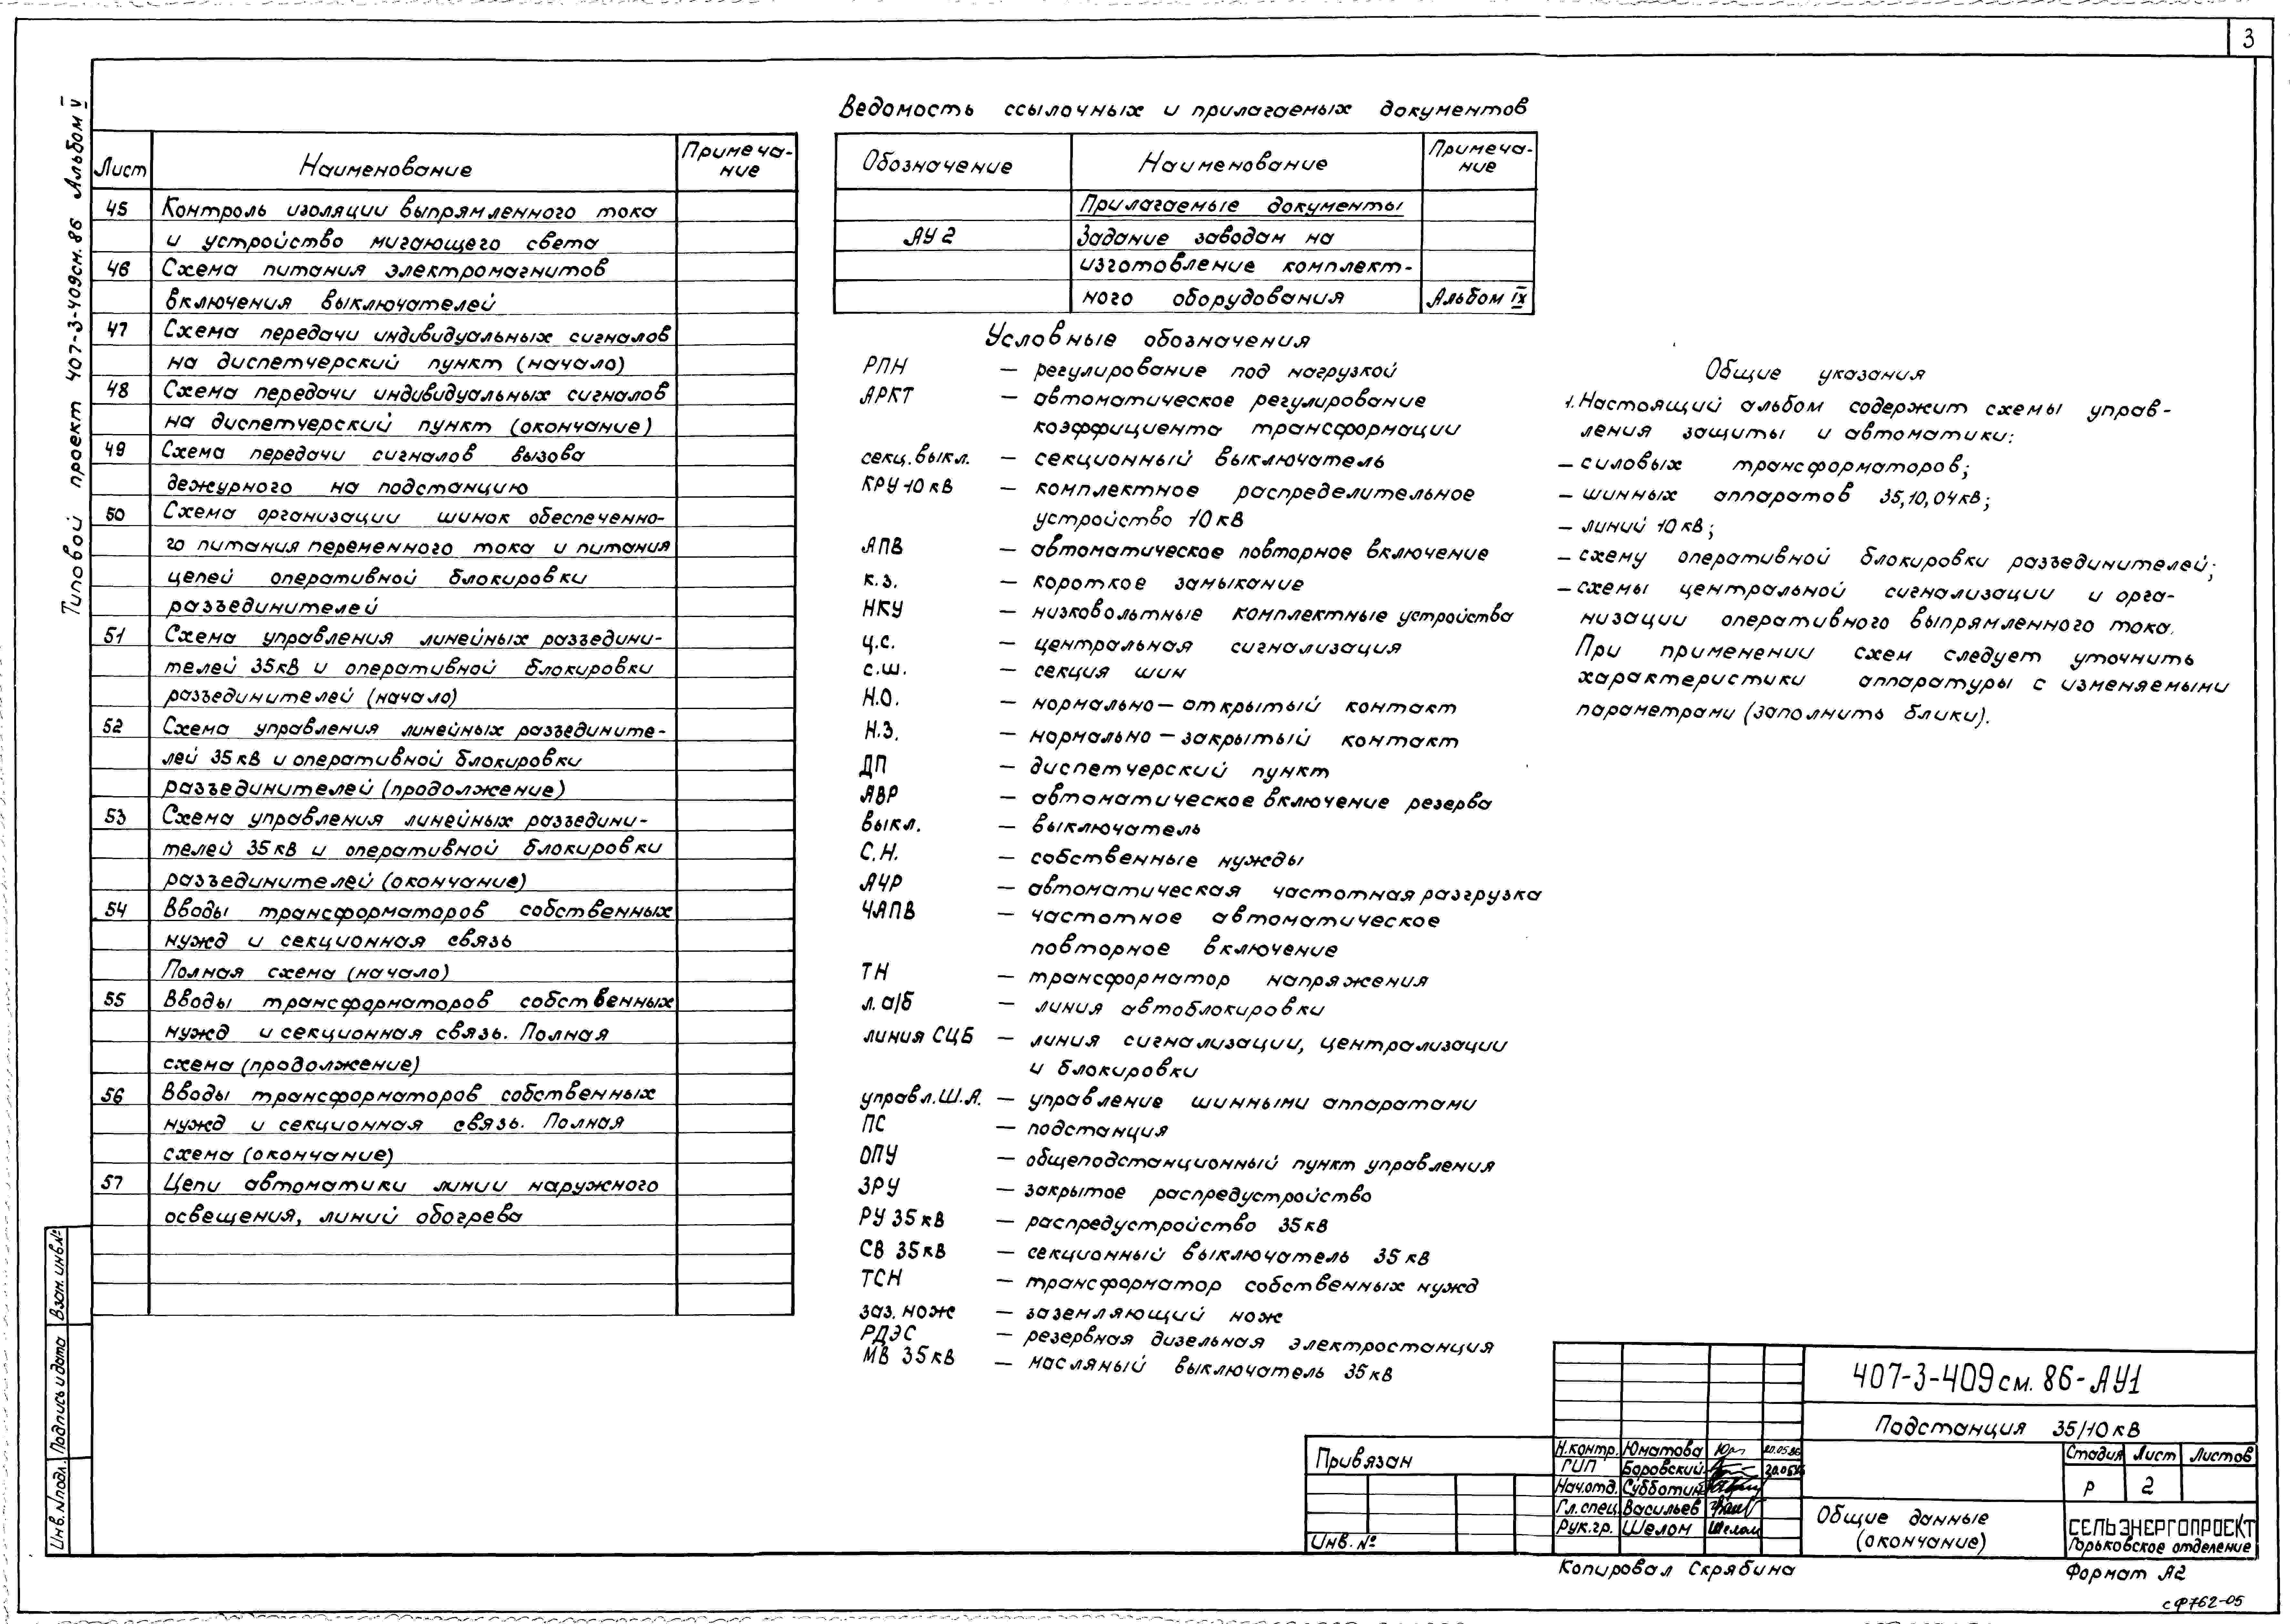 3
Типовой проект 407-3-409см.86 Альбом V
Лист
Наименование
Примеча-
ние
45 Контроль изоляции выпрямленного тока
и устройство мигающего света
46 Схема питания электромагнитов
включения выключателей
47 Схема передачи индивидуальных сигналов
на диспетчерский пункт (начало)
48 Схема передачи индивидуальных сигналов
на диспетчерский пункт (окончание)
49 Схема передачи сигналов вызова
дежурного на подстанцию
50 Схема организации шинок обеспеченно-
го питания переменного тока и питания
цепей оперативной блокировки
разъединителей
51 Схема управления линейных разъедини-
телей 35кВ и оперативной блокировки
разъединителей (начало)
52 Схема управления линейных разъедините-
лей 35кВ и оперативной блокировки
разъединителей (продолжение)
53 Схема управления линейных разъедини-
телей 35кВ и оперативной блокировки
разъединителей (окончание)
54 Вводы трансформаторов собственных
нужд и секционная связь
Полная схема (начало)
55 Вводы трансформаторов собственных
нужд и секционная связь. Полная
схема (продолжение)
56 Вводы трансформаторов собственных
нужд и секционная связь. Полная
схема (окончание)
57 Цепи автоматики линии наружного
освещения, линий обогрева
Ведомость ссылочных и прилагаемых документов
Обозначение
Наименование
Примеча-
ние
Прилагаемые документы
АУ2 Задание заводам на
изготовление комплект-
ного оборудования Альбом IX
Условные обозначения
РПН — регулирование под нагрузкой
АРКТ — автоматическое регулирование
коэффициента трансформации
секц.выкл. — секционный выключатель
КРУ-10кВ — комплектное распределительное
устройство 10кВ
АПВ — автоматическое повторное включение
к.з. — короткое замыкание
НКУ — низковольтные комплектные устройства
ц.с. — центральная сигнализация
с.ш. — секция шин
Н.О. — нормально-открытый контакт
Н.З. — нормально-закрытый контакт
ДП — диспетчерский пункт
АВР — автоматическое включение резерва
выкл. — выключатель
С.Н. — собственные нужды
АЧР — автоматическая частотная разгрузка
ЧАПВ — частотное автоматическое
повторное включение
ТН — трансформатор напряжения
л.а/б — линия автоблокировки
линия СЦБ — линия сигнализации, централизации
и блокировки
управл.Ш.А. — управление шинными аппаратами
ПС — подстанция
ОПУ — общеподстанционный пункт управления
ЗРУ — закрытое распредустройство
РУ 35кВ — распредустройство 35кВ
СВ 35кВ — секционный выключатель 35кВ
ТСН — трансформатор собственных нужд
заз. нож — заземляющий нож
РДЭС — резервная дизельная электростанция
МВ 35кВ — масляный выключатель 35кВ
Общие указания
1. Настоящий альбом содержит схемы управ-
ления защиты и автоматики:
— силовых трансформаторов;
— шинных аппаратов 35,10,04кВ;
— линий 10кВ;
— схему оперативной блокировки разъединителей;
— схемы центральной сигнализации и орга-
низации оперативного выпрямленного тока.
При применении схем следует уточнить
характеристики аппаратуры с изменяемыми
параметрами (заполнить блики).
Инв.№подл. Подпись и дата Взам. инв.№
Привязан
Инв. №
Н.контр. Юматова 20.05.86
ГИП Боровский 20.05.86
Нач.отд. Субботин
Гл.спец. Васильев
Рук.гр. Шелом
407-3-409см.86-АУ1
Подстанция 35/10кВ
Стадия Лист Листов
Р 2
Общие данные
(окончание)
СЕЛЬЭНЕРГОПРОЕКТ
Горьковское отделение
Копировал Скрябина
Формат А2
сФ762-05